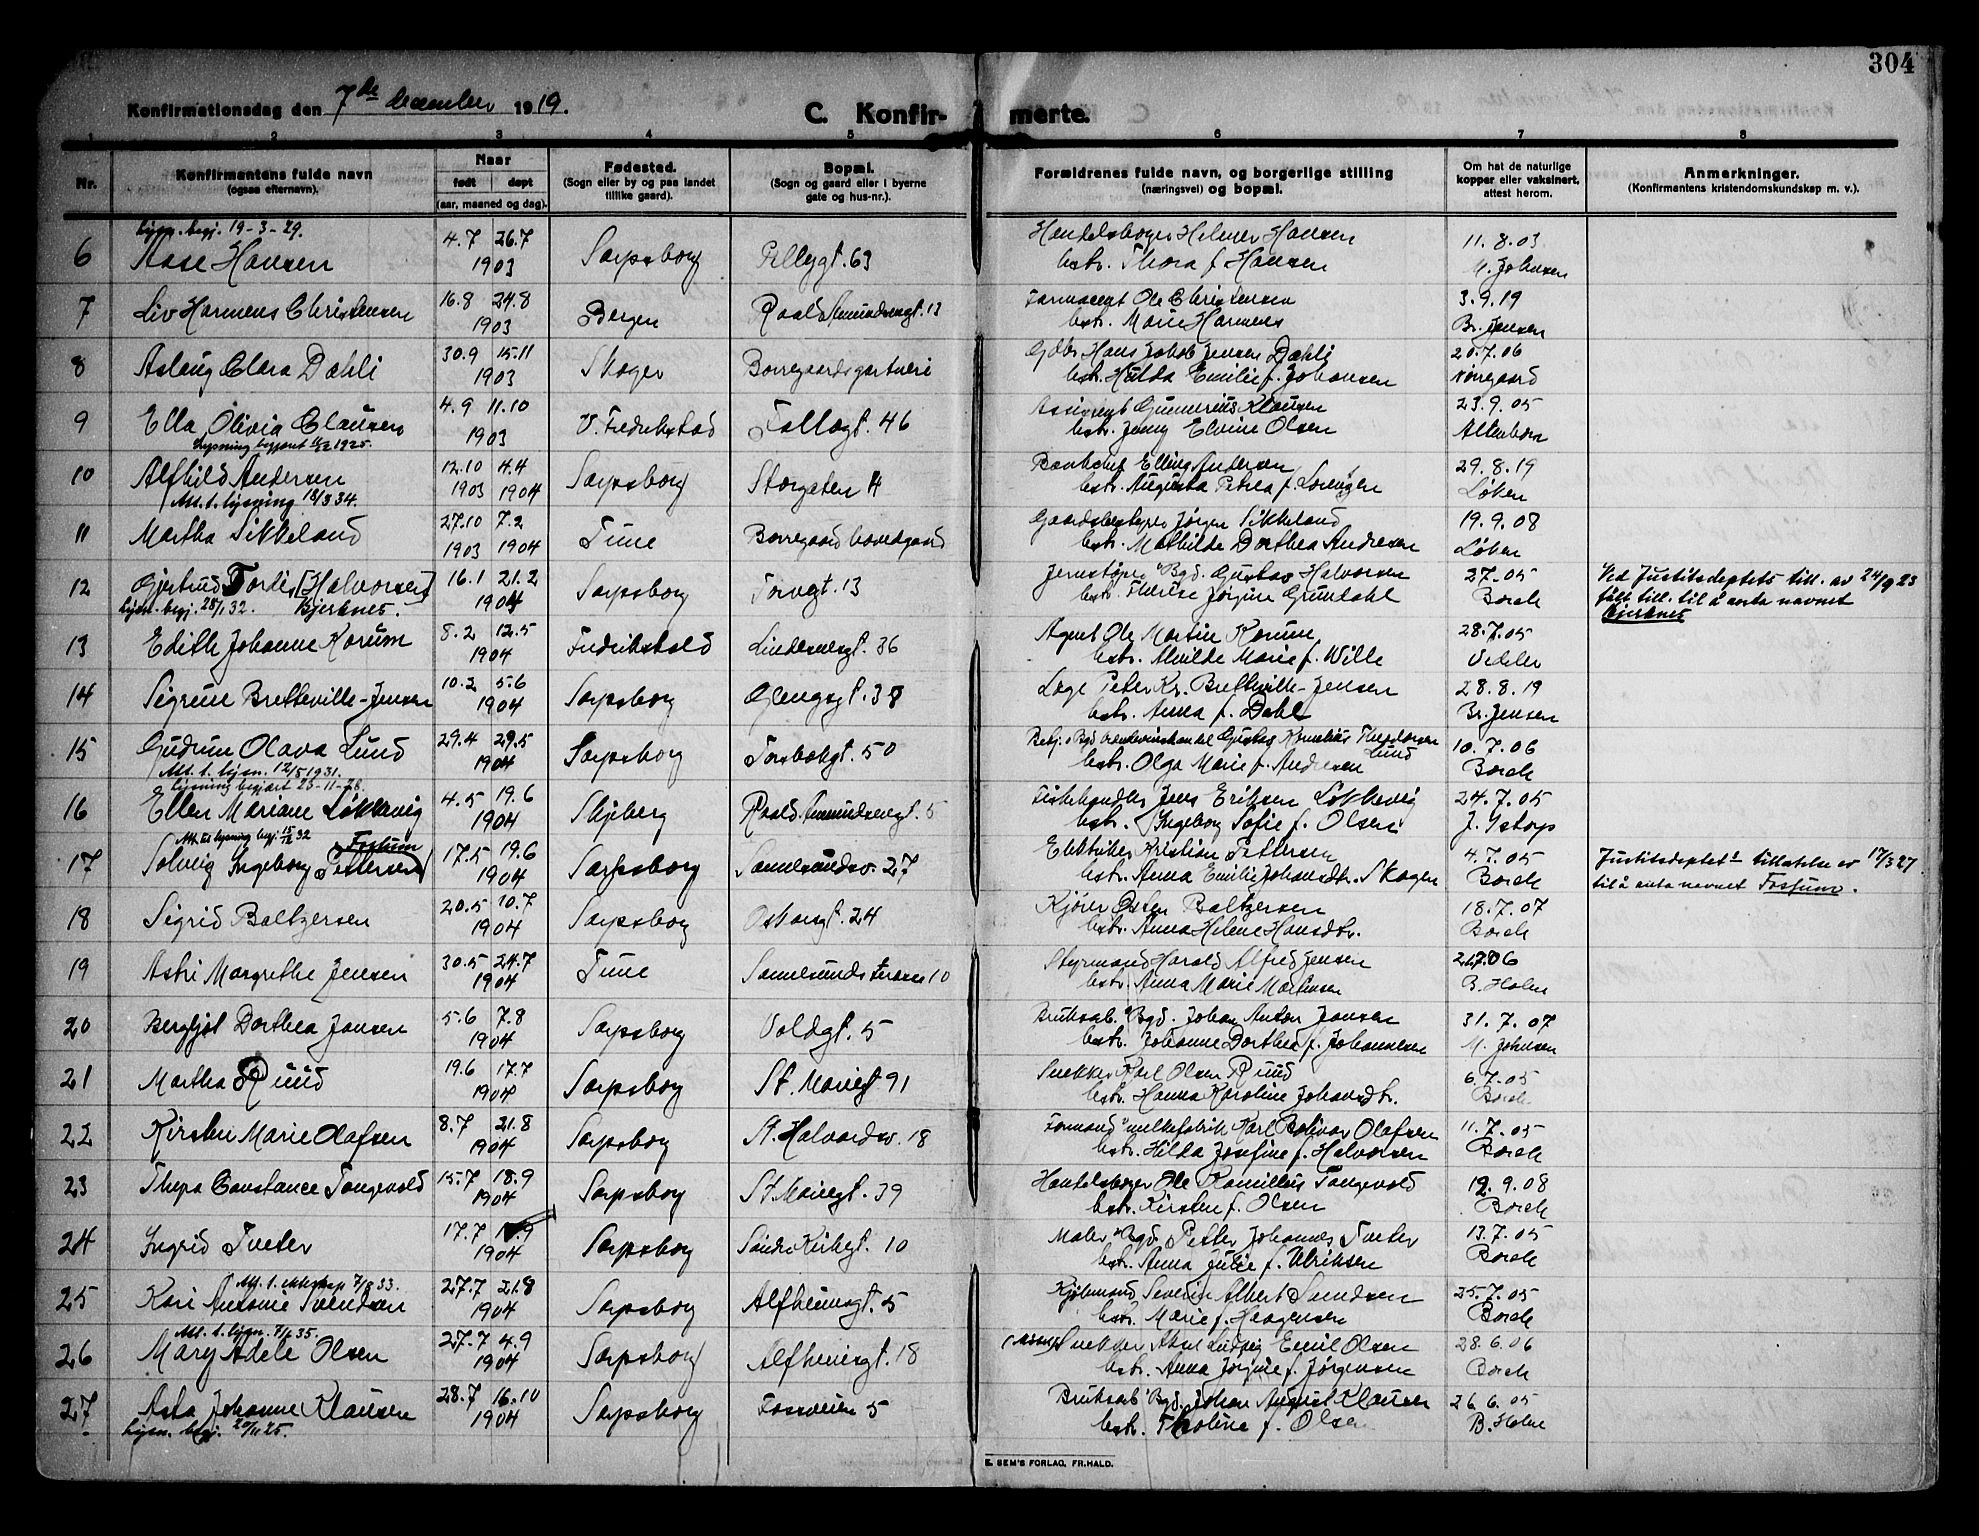 304
Konfirmationsdag den 7de december 1919.
C. Konfir- merte.
1 2 3 4 5 6 7 8
Nr.
Konfirmantens fulde navn
(ogsaa efternavn).
Naar
født døpt
(aar, maaned og dag).
Fødested.
(Sogn eller by og paa landet
tillike gaard).
Bopæl.
(Sogn og gaard eller i byerne
gate og hus-nr.).
Forældrenes fulde navn, og borgerlige stilling
(næringsvei) og bopæl.
Om hat de naturlige
kopper eller vaksinert,
attest herom.
Anmerkninger.
(Konfirmantens kristendomskundskap m. v.).
lysn. begj. 19-3-29.
6 Aase Hansen 4.7 26.7 1903 Sarpsborg Pellygt. 63 Handelsborger Helmer Hansen 11.8.03
hstr. Thora f. Hansen M. Johnsen
7 Liv Harmens Christensen 16.8 24.8 1903 Bergen Roald Amundsengt. 13 Farmaceut Ole Christensen 3.9.19
hstr. Marie Harmens Br. Jensen
8 Aslaug Clara Dæhli 30.9 15.11 1903 Skoger Borregaardsgartneri Gdbr. Hans Jakob Jensen Dæhli 20.7.06
hstr. Hulda Emilie f. Johansen Nørregaard
9 Ella Olivia Clausen 4.9 11.10 1903 V. Fredrikstad Tollegt. 46 Gunnerius Klausen 23.9.05
hstr. Jenny Elvine Olsen Altenborn
Lysning begjært 1925.
10 Alfhild Andersen 12.10 1903 4.4 1904 Sarpsborg Storgaten 4 Bankchef Elling Andersen 29.8.19
hstr. Augusta Petrea f. Lorentzen Løken
Att. t. lysning 18/3 34.
11 Martha Sikkeland 27.10 1903 7.2 1904 Tune Borregaard hovedgaard Gaardsbestyrer Jørgen Sikkeland 19.9.08
hstr. Mathilde Dorthea Andresen Løken
12 Gjertrud Tordis [Halvorsen] 16.1 21.2 1904 Sarpsborg Torvgt. 13 Jernstøper Bgd. Gustav Halvorsen 27.05
lysn. begj. 28/1 32. Bjerknes. hstr. Therese Jørgine Grundahl Borch
Ved Justitsdeptets till. av 24/9 23
fått till. til å anta navnet
Bjerknes
13 Edith Johanne Korum 8.2 12.5 1904 Fredrikshald Lindemansgt. 36 Agent Ole Martin Korum 28.7.05
hstr. Alvilde Marie f. Wille Vedeler
14 Sigrun Bretteville-Jensen 10.2 5.6 1904 Sarpsborg Glengsgt. 38 Læge Peter Kr. Bretteville-Jensen 28.8.19
hstr. Anna f. Dahl Br. Jensen
15 Gudrun Olava Lund 29.4 29.5 1904 Sarpsborg Torsbekgt. 50 Gustav Kornelius Theodorsen Lund 10.7.06
hstr. Olga Marie f. Andresen Borch
Att. t. lysn. 12/5 1931.
lysning begjært 23-11-28.
16 Ellen Mariane Løkkevig 4.5 19.6 1904 Skjeberg Roald Amundsengt. 5 Fiskehandler Jens Eriksen Løkkevig 24.7.05
hstr. Ingeborg Sofie f. Olsen J. Ystorp
Att. til lysning begj. 15/12 32
Fossum
17 Solveig Ingeborg (Pettersen) 17.5 19.6 1904 Sarpsborg Sannesundsv. 27 Elektriker Kristian Pettersen 4.7.05
hstr. Anna Emilie Johansdtr. Skogen Borch
Justitsdeptets tillatelse av 17/3 27
til å anta navnet Fossum.
18 Sigrid Baltzersen 20.5 10.7 1904 Sarpsborg Oskarsgt. 24 Kjører Østen Baltzersen 18.7.07
hstr. Anna Helene Hansdtr. Borch
19 Astri Margrethe Jensen 30.5 24.7 1904 Tune Sannesunds terasse 10 Styrmand Harald Alfred Jensen 2.7.06
hstr. Anna Marie Mathisen B. Holm
20 Bergljot Dorthea Jansen 5.6 7.8 1904 Sarpsborg Voldgt. 5 Bruksarb. Bgd. Johan Anton Jansen 31.7.07
hstr. Johanne Dorthea f. Johannesen M. Johnsen
21 Martha Ruud 19.6 17.7 1904 Sarpsborg St. Mariegt 91 Snekker Karl Olsen Ruud 6.7.05
hstr. Hanna Karoline Johansdtr. Borch
22 Kirsten Marie Olafsen 8.7 21.8 1904 Sarpsborg St. Halvardsv. 18 Formand melkefabrik Karl Bolivar Olafsen 11.7.05
hstr. Hilda Josefine f. Halvorsen Borch
23 Thea Constance Tangevold 15.7 18.9 1904 Sarpsborg St. Mariegt. 39 Handelsborger Ole Kamillus Tangevold 12.9.08
hstr. Kirsten f. Olsen Borch
24 Ingrid Tveter 17.7 1904 Sarpsborg Søndre Kirkegt. 10 Maler Bgd. Petter Johannes Tveter 13.7.05
hstr. Anna Julie f. Ulriksen Borch
Att. t. ekteskap 7/8 33.
25 Kari Antonie Svendsen 27.7 21.8 1904 Sarpsborg Alfheimsgt. 5 Kjøbmand Severin Albert Svendsen 25.7.05
hstr. Marie f. Haagensen Borch
Att. t. lysn. 7/1 35.
26 Mary Adele Olsen 27.7 4.9 1904 Sarpsborg Alfheimsgt. 18 Snekker Aksel Ludvig Emil Olsen 28.6.06
hstr. Anna Jørgine f. Jørgensen Borch
27 Asta Johanne Klausen 28.7 16.10 1904 Sarpsborg Fossveien 5 Bruksarb. Bgd. Johan August Klausen 26.6.05
lysn. begj. 20/11 25. hstr. Tholine f. Olsen B. Holm
E. SEM'S FORLAG, FR.HALD.